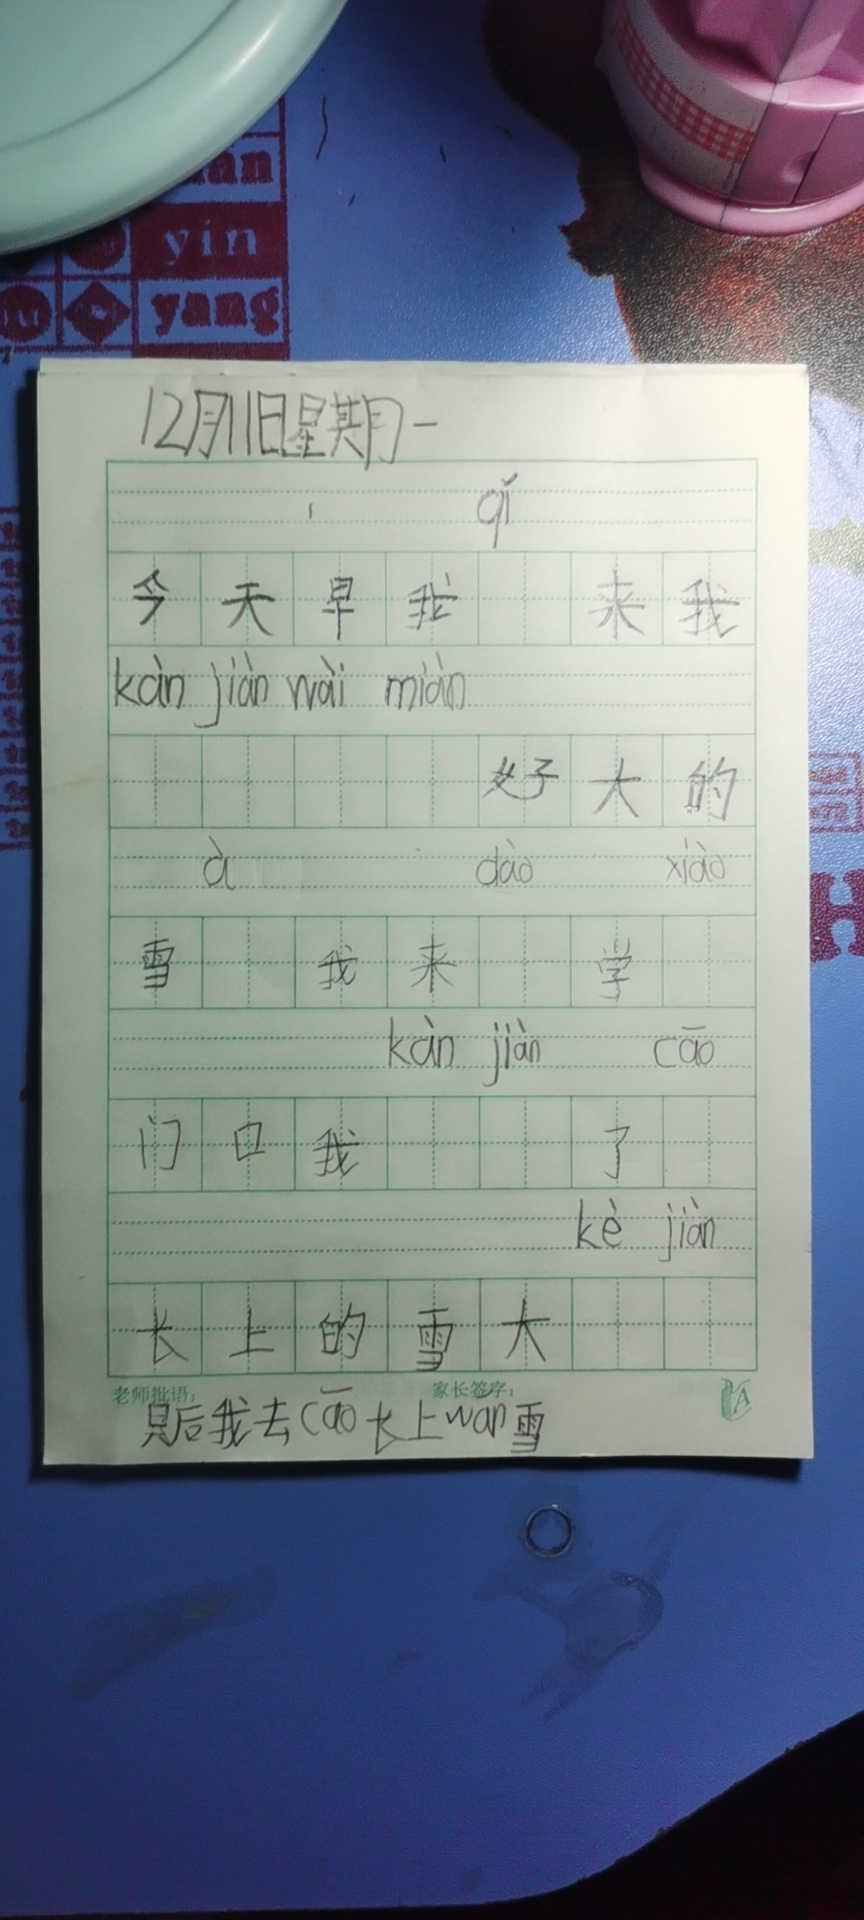 an
yin
yang
12月11日星期一
qǐ
今天早我 来我
kàn jiàn wài miàn
好大的
à dào xiào
雪 我来 学
kàn jiàn cāo
门口我 了
kè jiàn
长上的雪大
老师批语: 家长签字:
只后我去cāo长上wan雪